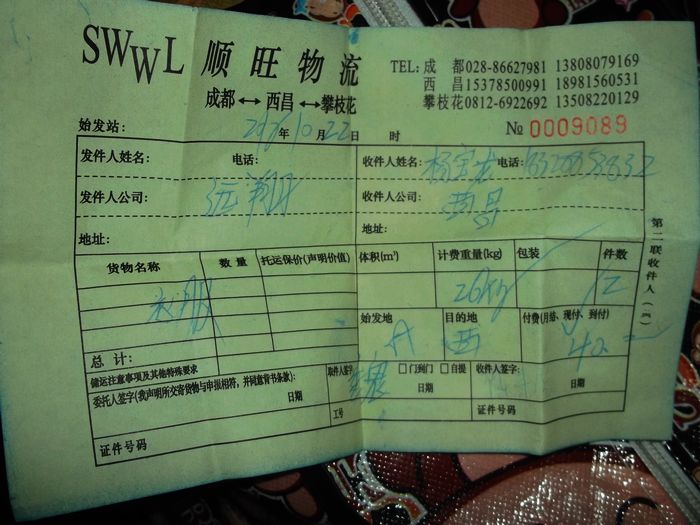 SWWL 顺旺物流
成都↔西昌↔攀枝花
TEL: 成 都028-86627981 13808079169
西 昌15378500991 18981560531
攀枝花0812-6922692 13508220129
始发站: 年10月22日 时
№ 0009089
发件人姓名: 电话: 收件人姓名: 电话:
发件人公司: 远翔 收件人公司: 西昌
地址: 地址:
货物名称 数量 托运保价(声明价值) 体积(m³) 计费重量(kg) 包装 件数
衣服 26kg
始发地 目的地 付费(月结、现付、到付)
西 40
总 计:
储运注意事项及其他特殊要求
委托人签字(我声明所交寄货物与申报相符,并同意背书条款):
日期
取件人签字
工号
□门到门 □自提
日期
收件人签字:
日期
证件号码 证件号码
第二联收件人